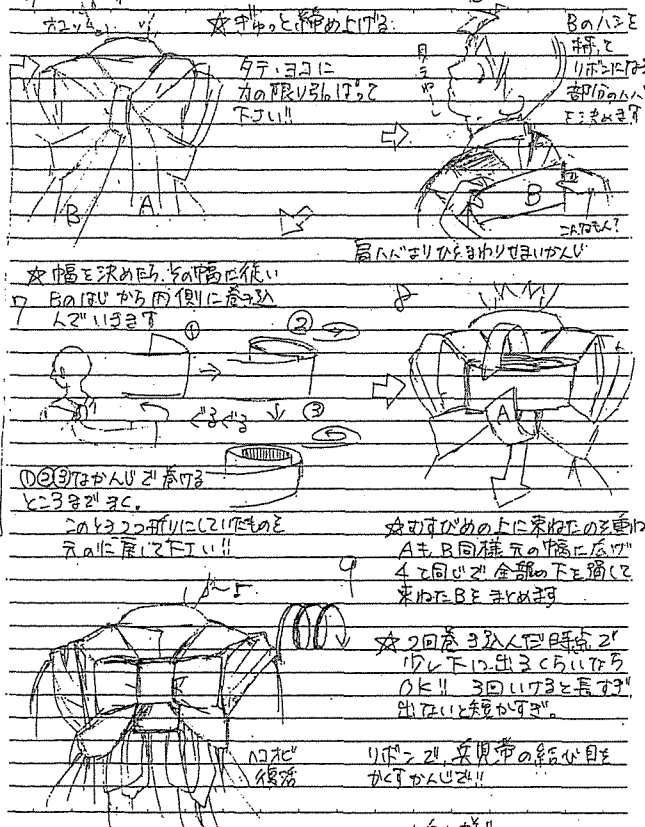 ☆ぎゅっと締め上げる
タテ・ヨコに
力の限り引っぱって
下さい!!
B A
Bのハシを
持って
リボンになる
部分のハバ
を決めます
B
こんなもん?
肩ハバよりひとまわりせまいかんじ
☆幅を決めたら、その幅に従い
7 Bのはじから内側に巻き込
んでいきます
① ②
③
ぐるぐる
①②③なかんじで巻ける
ところまでまく。
このとき2つ折りにしていたものを
元の に戻して下さい!!
8
A
☆むすびめの上に束ねたのを重ね
AもB同様元の幅に広げ
4と同じで全部の下を通して
束ねたBをまとめます
9
☆2回巻き込んだ時点で
少し下に出るくらいなら
OK!! 3回いけると長すぎ
出ないと短かすぎ。
ヘコオビ
復活
リボンで、兵児帯の結び目を
かくすかんじで!!